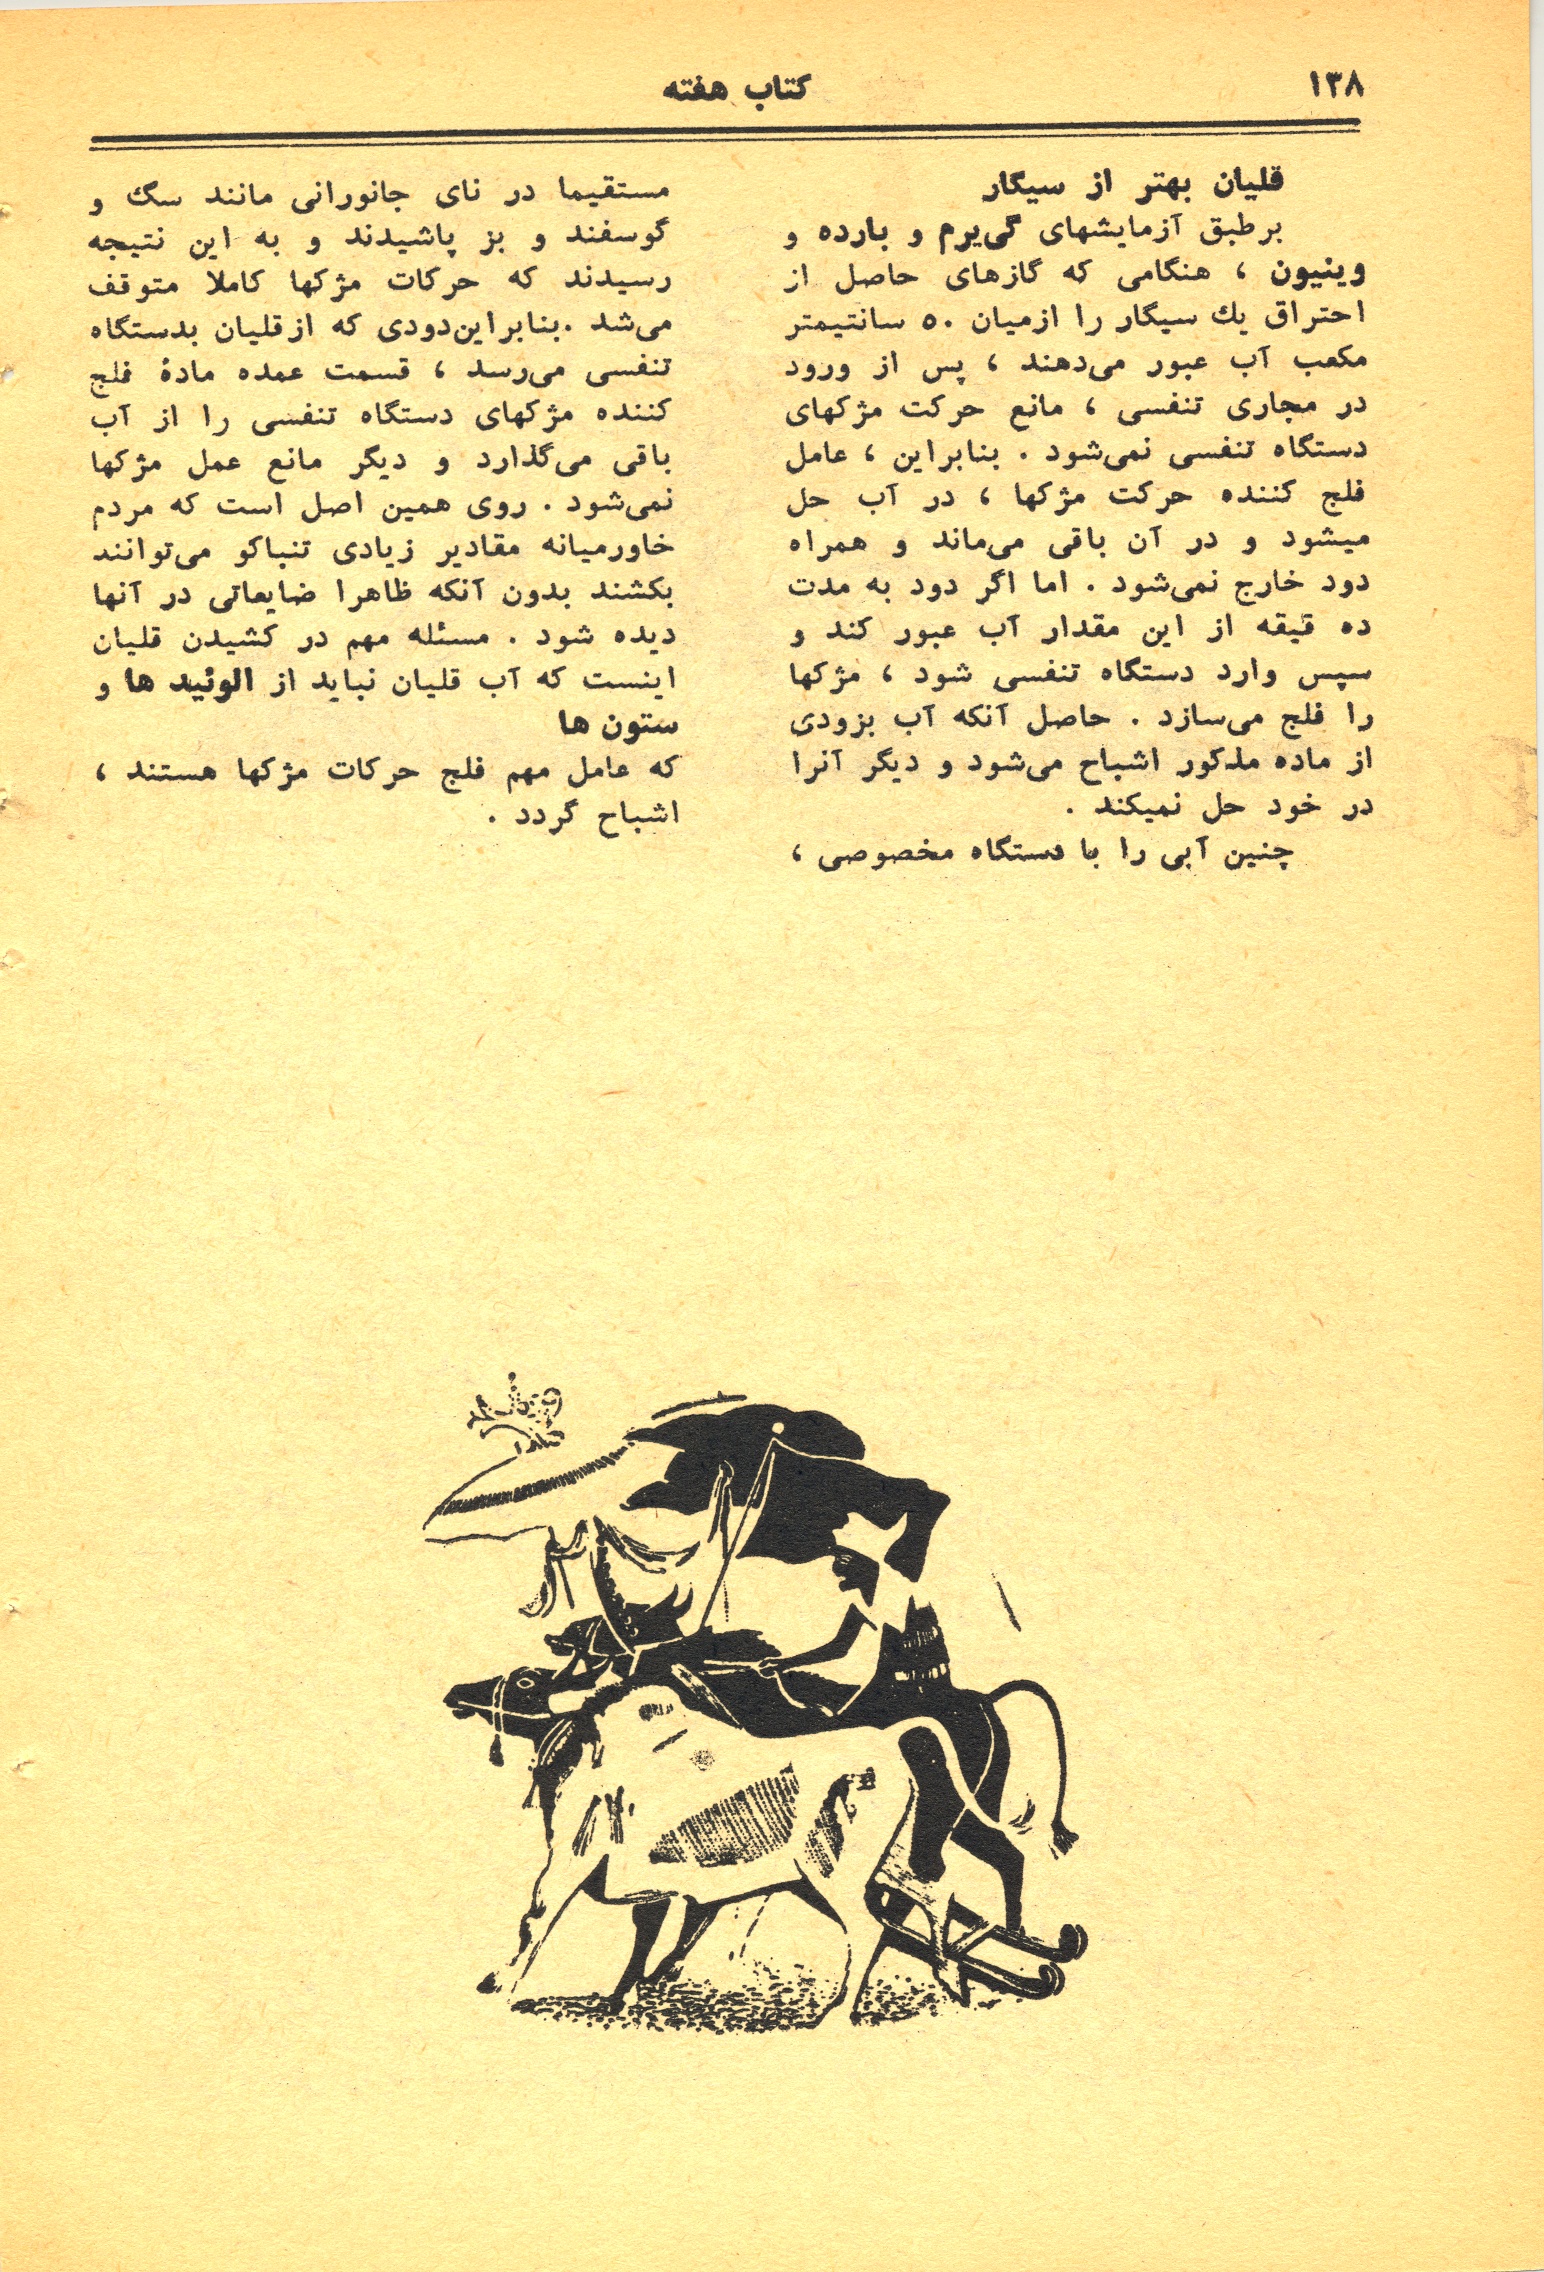 ۱۳۸
کتاب هفته
قلیان بهتر از سیگار
برطبق آزمایشهای گی‌یرم و بارده و
وینیون ، هنگامی که گازهای حاصل از
احتراق یك سیگار را ازمیان ۵۰ سانتیمتر
مکعب آب عبور می‌دهند ، پس از ورود
در مجاری تنفسی ، مانع حرکت مژکهای
دستگاه تنفسی نمی‌شود . بنابراین ، عامل
فلج کننده حرکت مژکها ، در آب حل
میشود و در آن باقی می‌ماند و همراه
دود خارج نمی‌شود . اما اگر دود به مدت
ده قیقه از این مقدار آب عبور کند و
سپس وارد دستگاه تنفسی شود ، مژکها
را فلج می‌سازد . حاصل آنکه آب بزودی
از ماده مذکور اشباح می‌شود و دیگر آنرا
در خود حل نمیکند .
چنین آبی را با دستگاه مخصوصی ،
مستقیما در نای جانورانی مانند سگ و
گوسفند و بز پاشیدند و به این نتیجه
رسیدند که حرکات مژکها کاملا متوقف
می‌شد .بنابراین‌دودی که ازقلیان بدستگاه
تنفسی می‌رسد ، قسمت عمده مادهٔ فلج
کننده مژکهای دستگاه تنفسی را از آب
باقی می‌گذارد و دیگر مانع عمل مژکها
نمی‌شود . روی همین اصل است که مردم
خاورمیانه مقادیر زیادی تنباکو می‌توانند
بکشند بدون آنکه ظاهرا ضایعاتی در آنها
دیده شود . مسئله مهم در کشیدن قلیان
اینست که آب قلیان نباید از الوئید ها و
ستون ها
که عامل مهم فلج حرکات مژکها هستند ،
اشباح گردد .